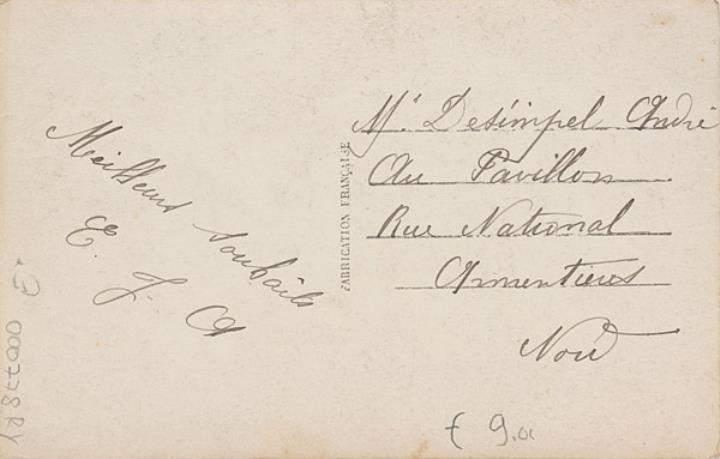 Meilleurs souhaits
E. J. A
FABRICATION FRANÇAISE
Mr. Desimpel André
Au Pavillon
Rue National
Armentieres
Nord
€ 9.00